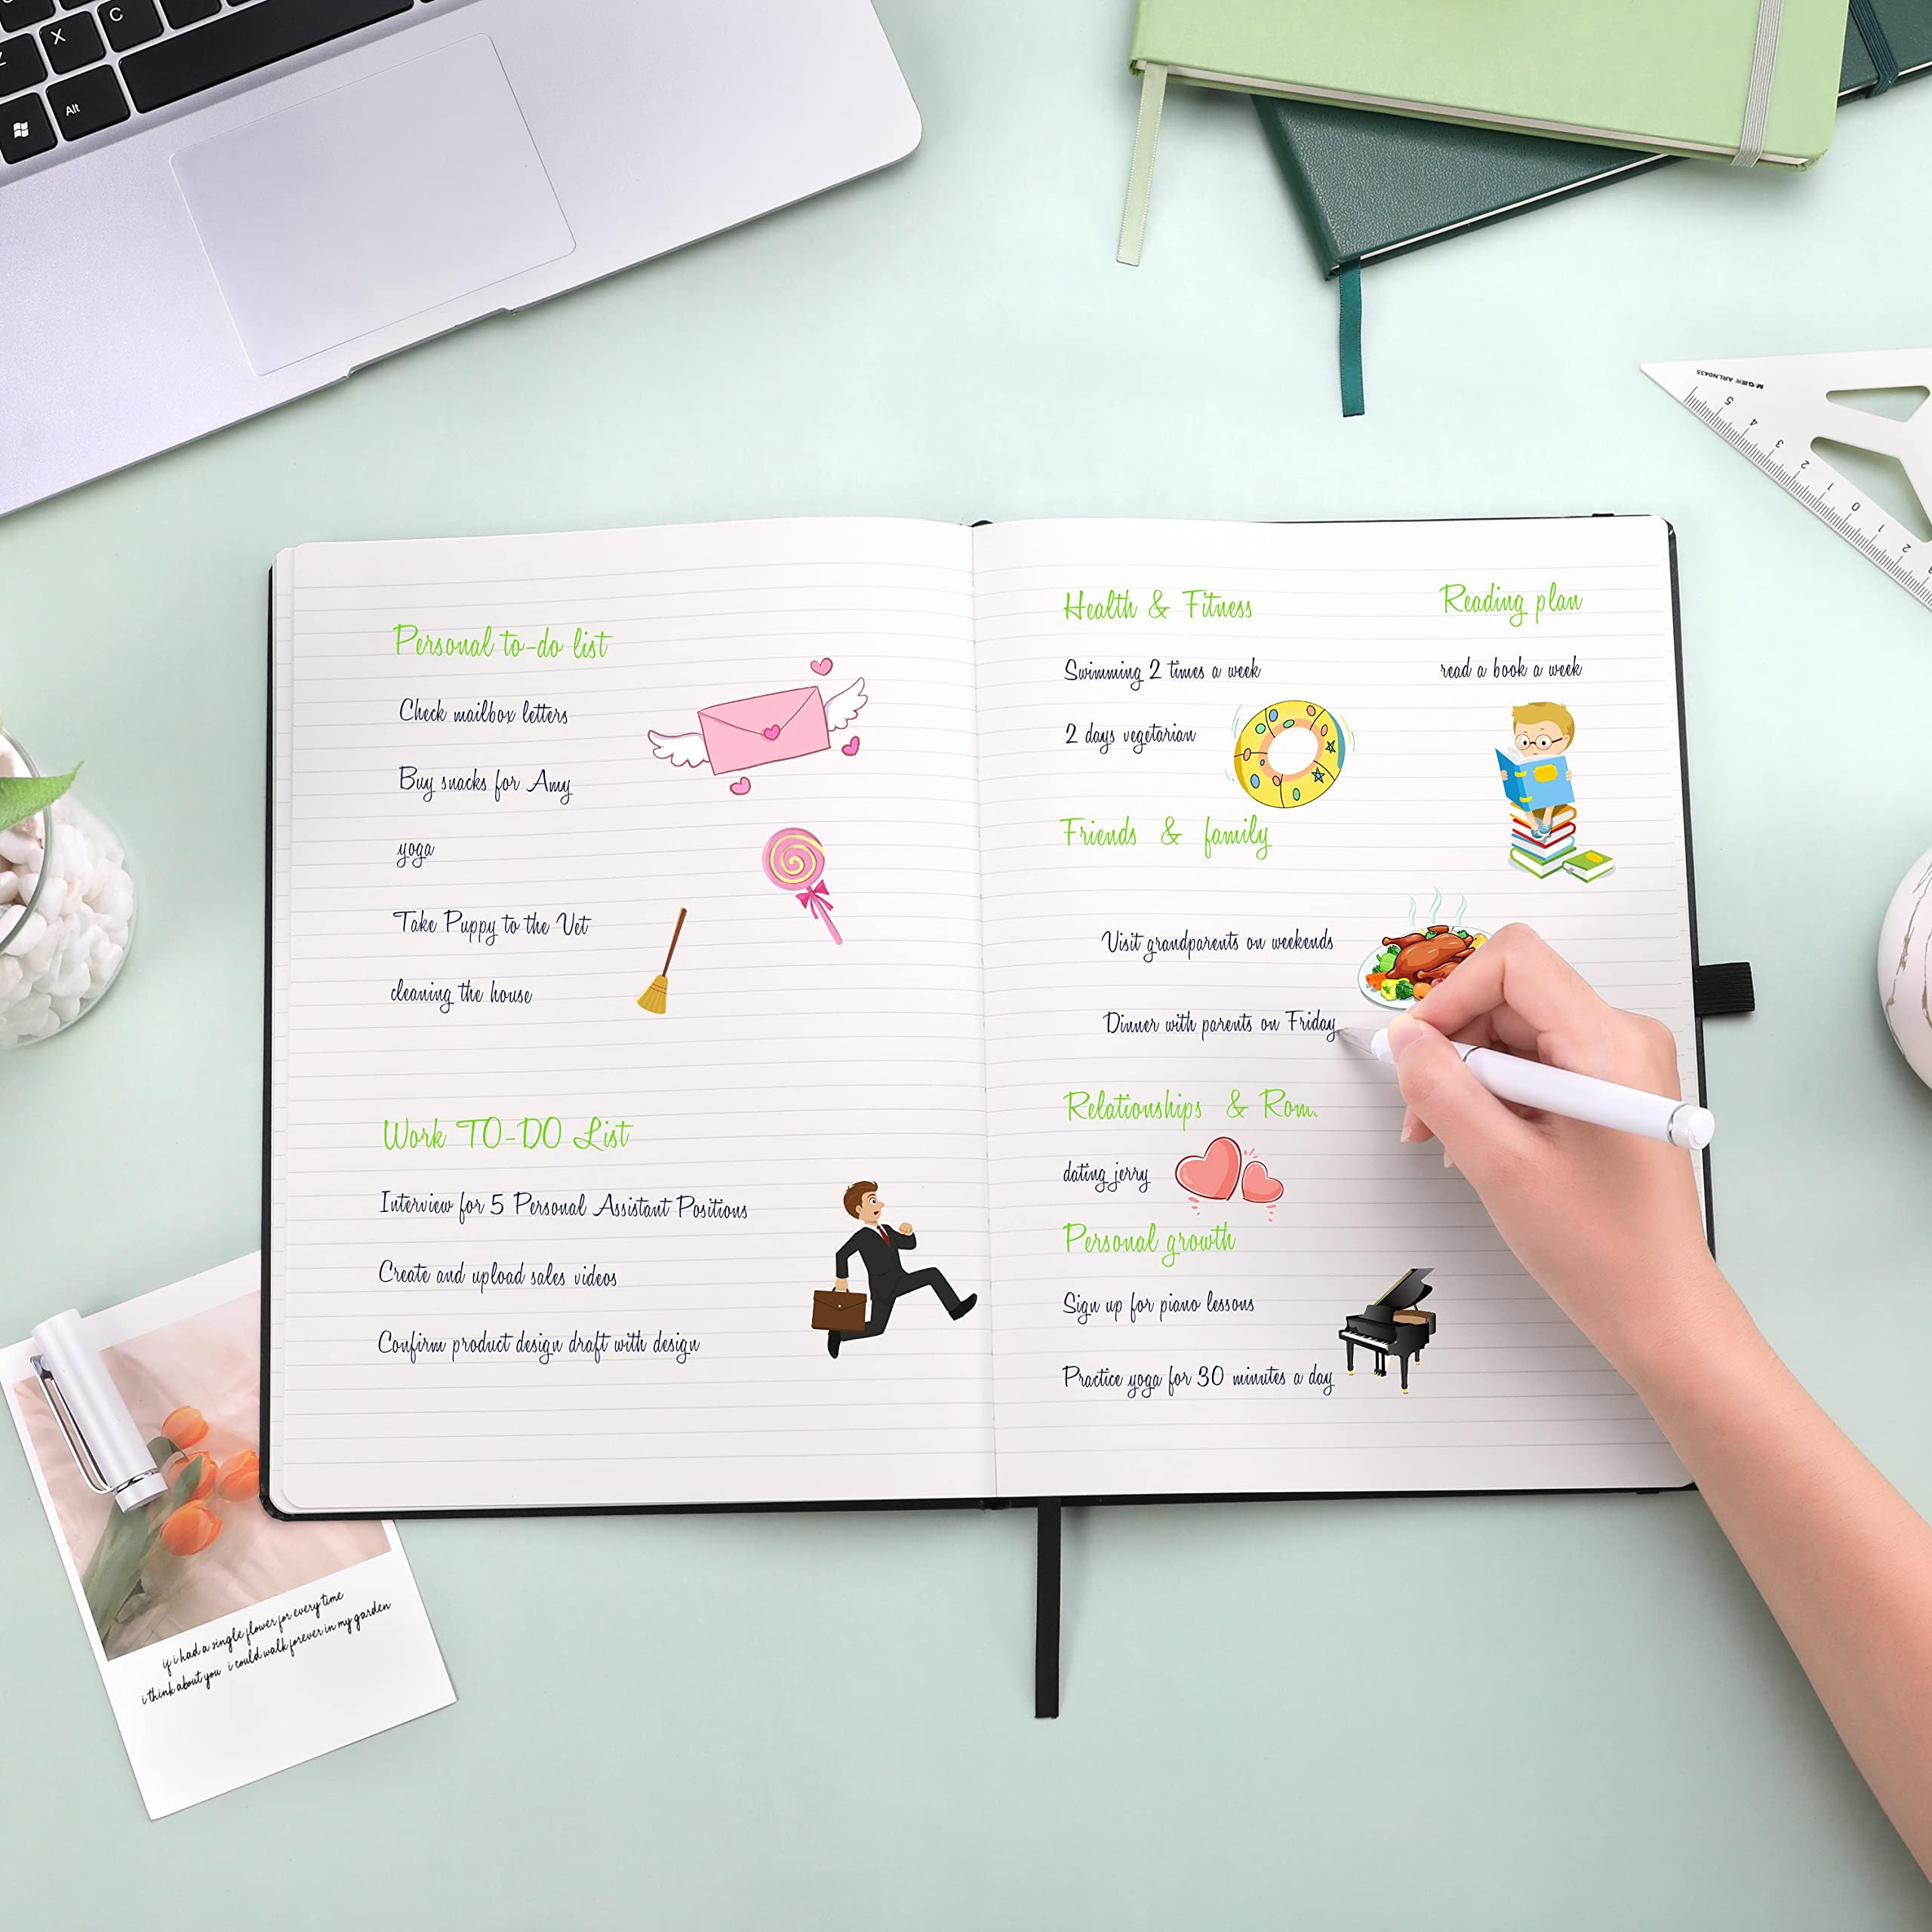 C
X
Z
Alt
M&G ARLN0435
5
4
3
2
1
0
1
2
Personal to-do list
Check mailbox letters
Buy snacks for Amy
yoga
Take Puppy to the Vet
cleaning the house
Work TO-DO List
Interview for 5 Personal Assistant Positions
Create and upload sales videos
Confirm product design draft with design
Health & Fitness
Swimming 2 times a week
2 days vegetarian
Reading plan
read a book a week
Friends & family
Visit grandparents on weekends
Dinner with parents on Friday
Relationships & Rom.
dating jerry
Personal growth
Sign up for piano lessons
Practice yoga for 30 minutes a day
if i had a single flower for every time
i think about you i could walk forever in my garden